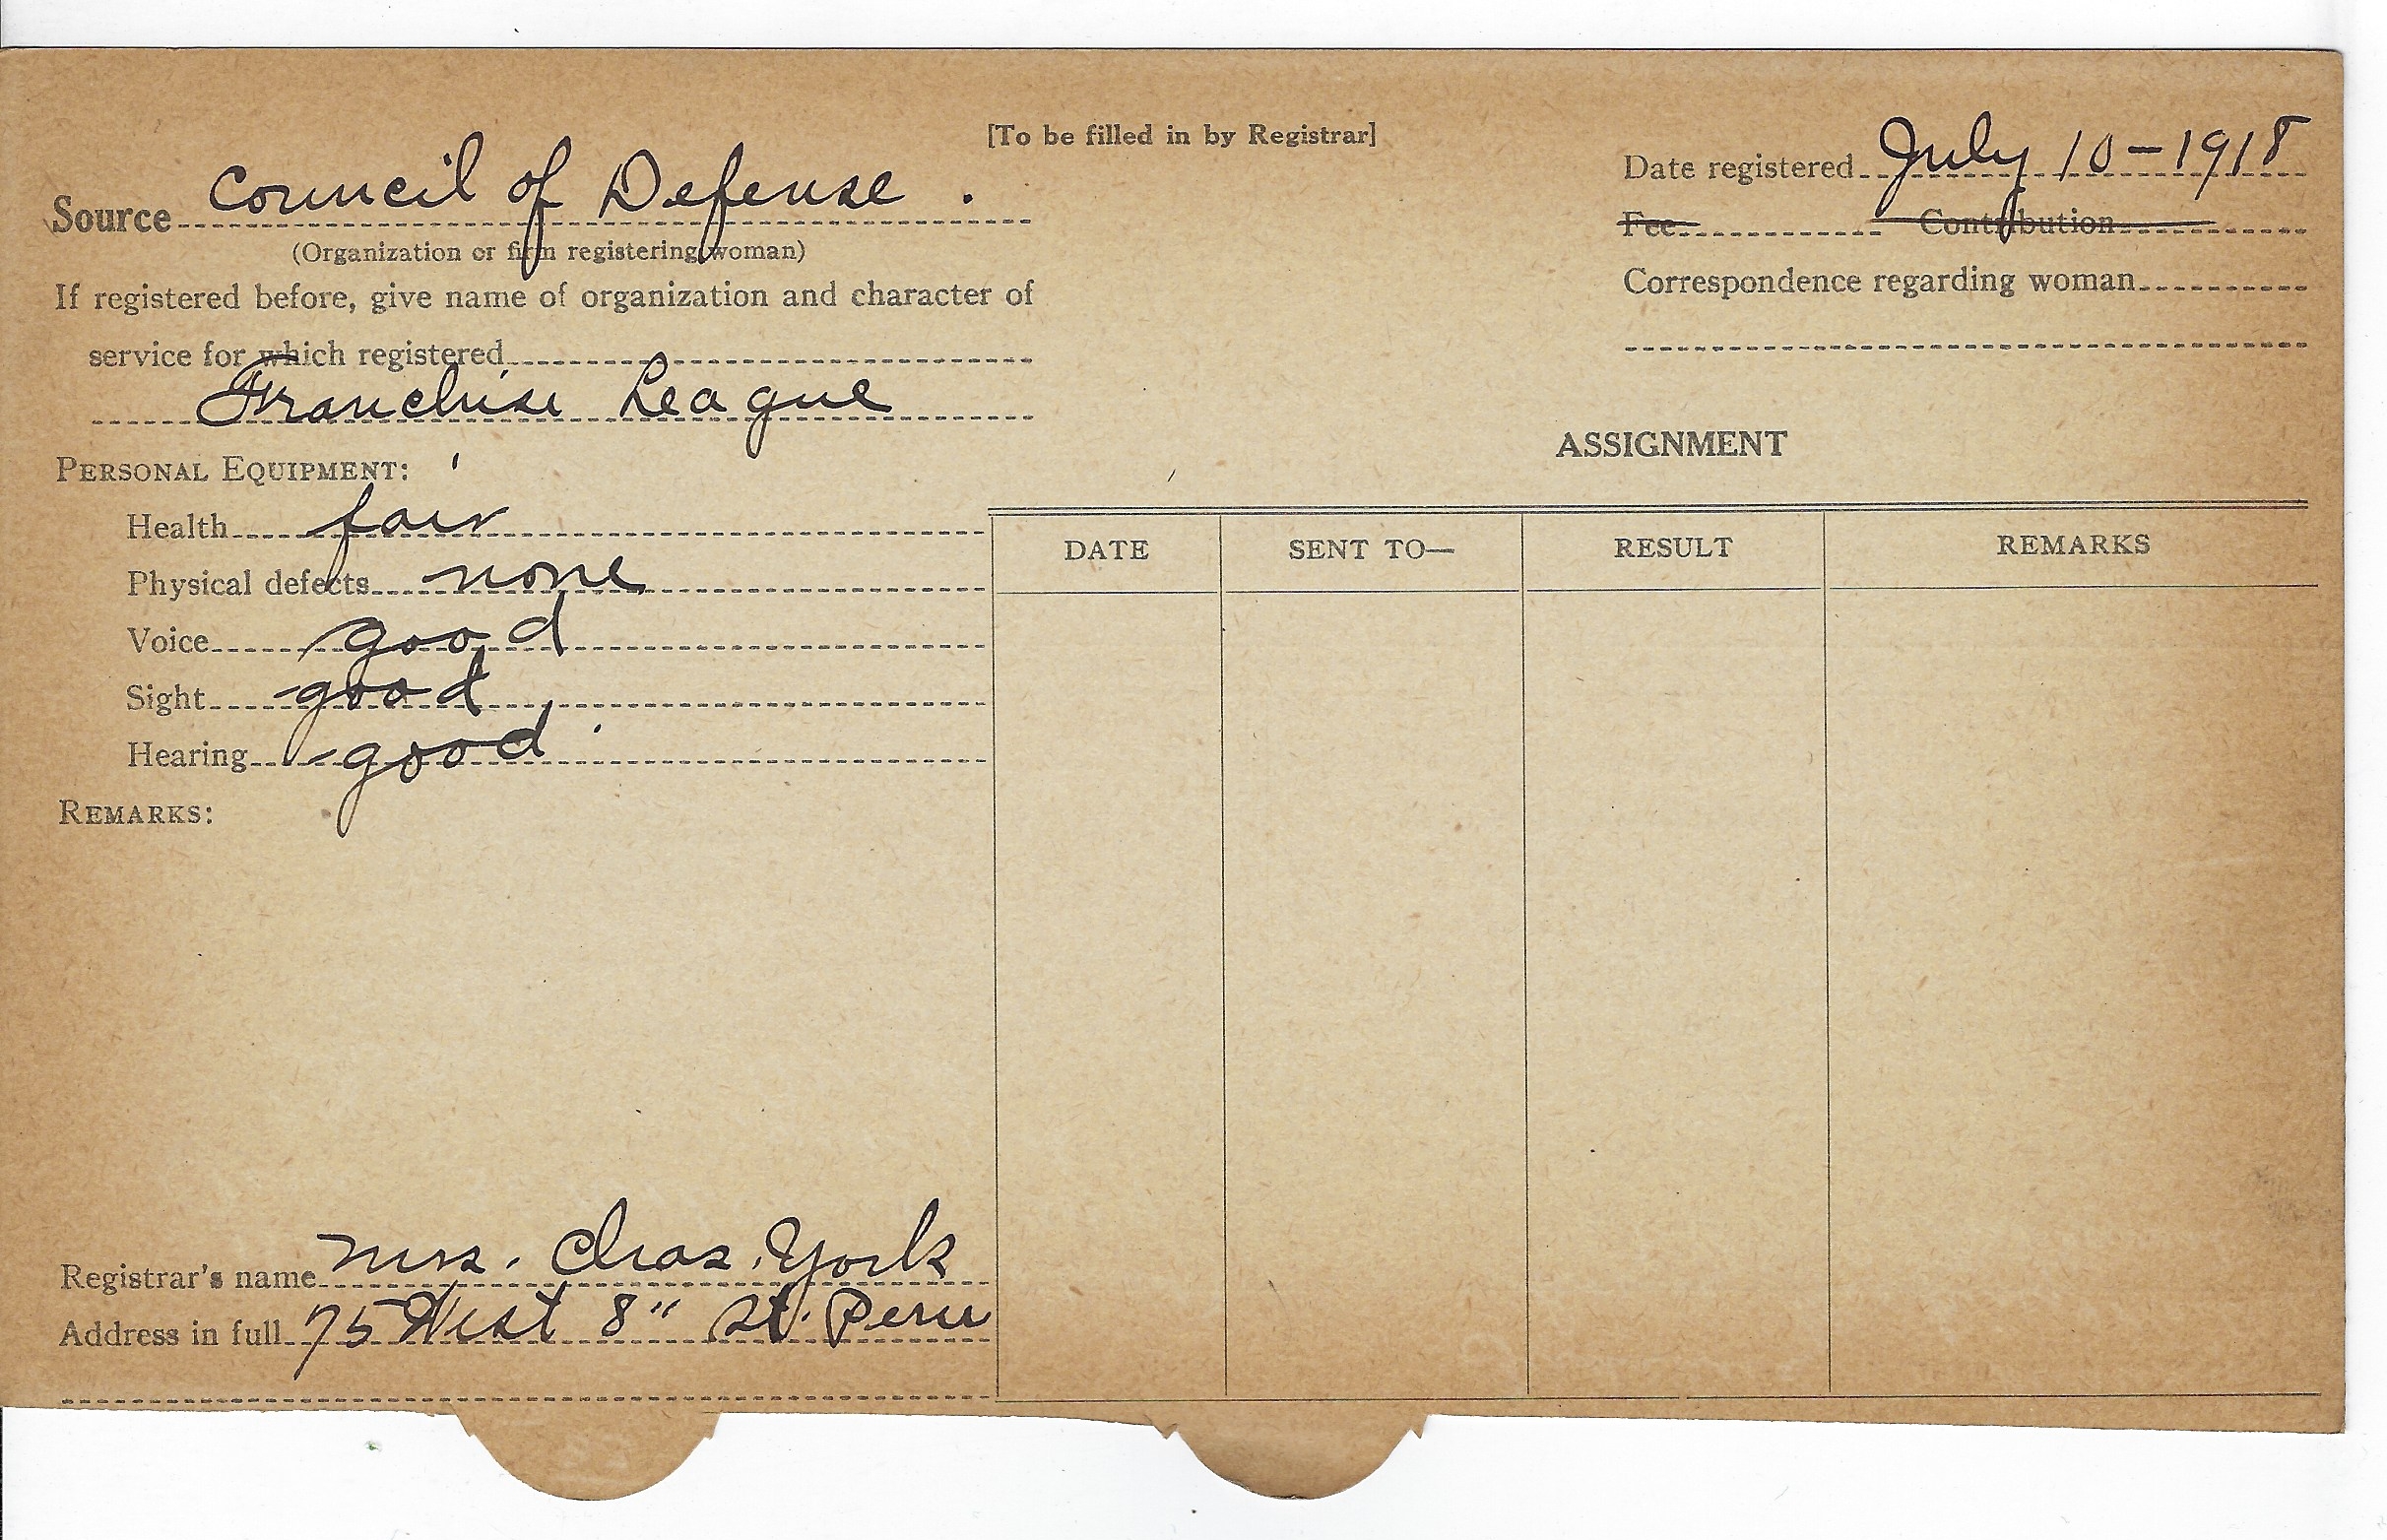 [To be filled in by Registrar]
Source Council of Defense .
(Organization or firm registering woman)
If registered before, give name of organization and character of
service for which registered
Franchise League
Date registered July 10-1918
Fee Contribution
Correspondence regarding woman
PERSONAL EQUIPMENT:
Health fair
Physical defects none
Voice good
Sight good
Hearing good
REMARKS:
ASSIGNMENT
DATE SENT TO— RESULT REMARKS
Registrar's name Mrs. Chas. York
Address in full 75 West 8" St. Peru